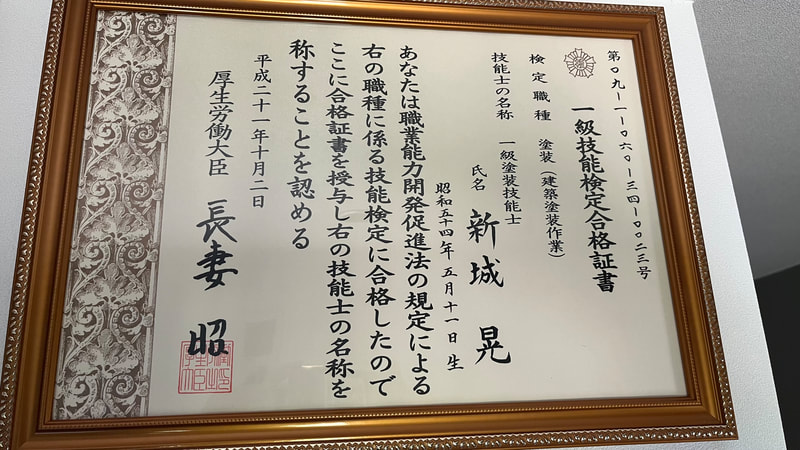 第〇九-一-〇六〇-三四-〇〇二三号
一級技能検定合格証書
検定職種 塗装(建築塗装作業)
技能士の名称 一級塗装技能士
氏名 新城 晃
昭和五十四年五月十一日生
あなたは職業能力開発促進法の規定による
右の職種に係る技能検定に合格したので
ここに合格証書を授与し右の技能士の名称を
称することを認める
平成二十一年十月二日
厚生労働大臣 長妻 昭